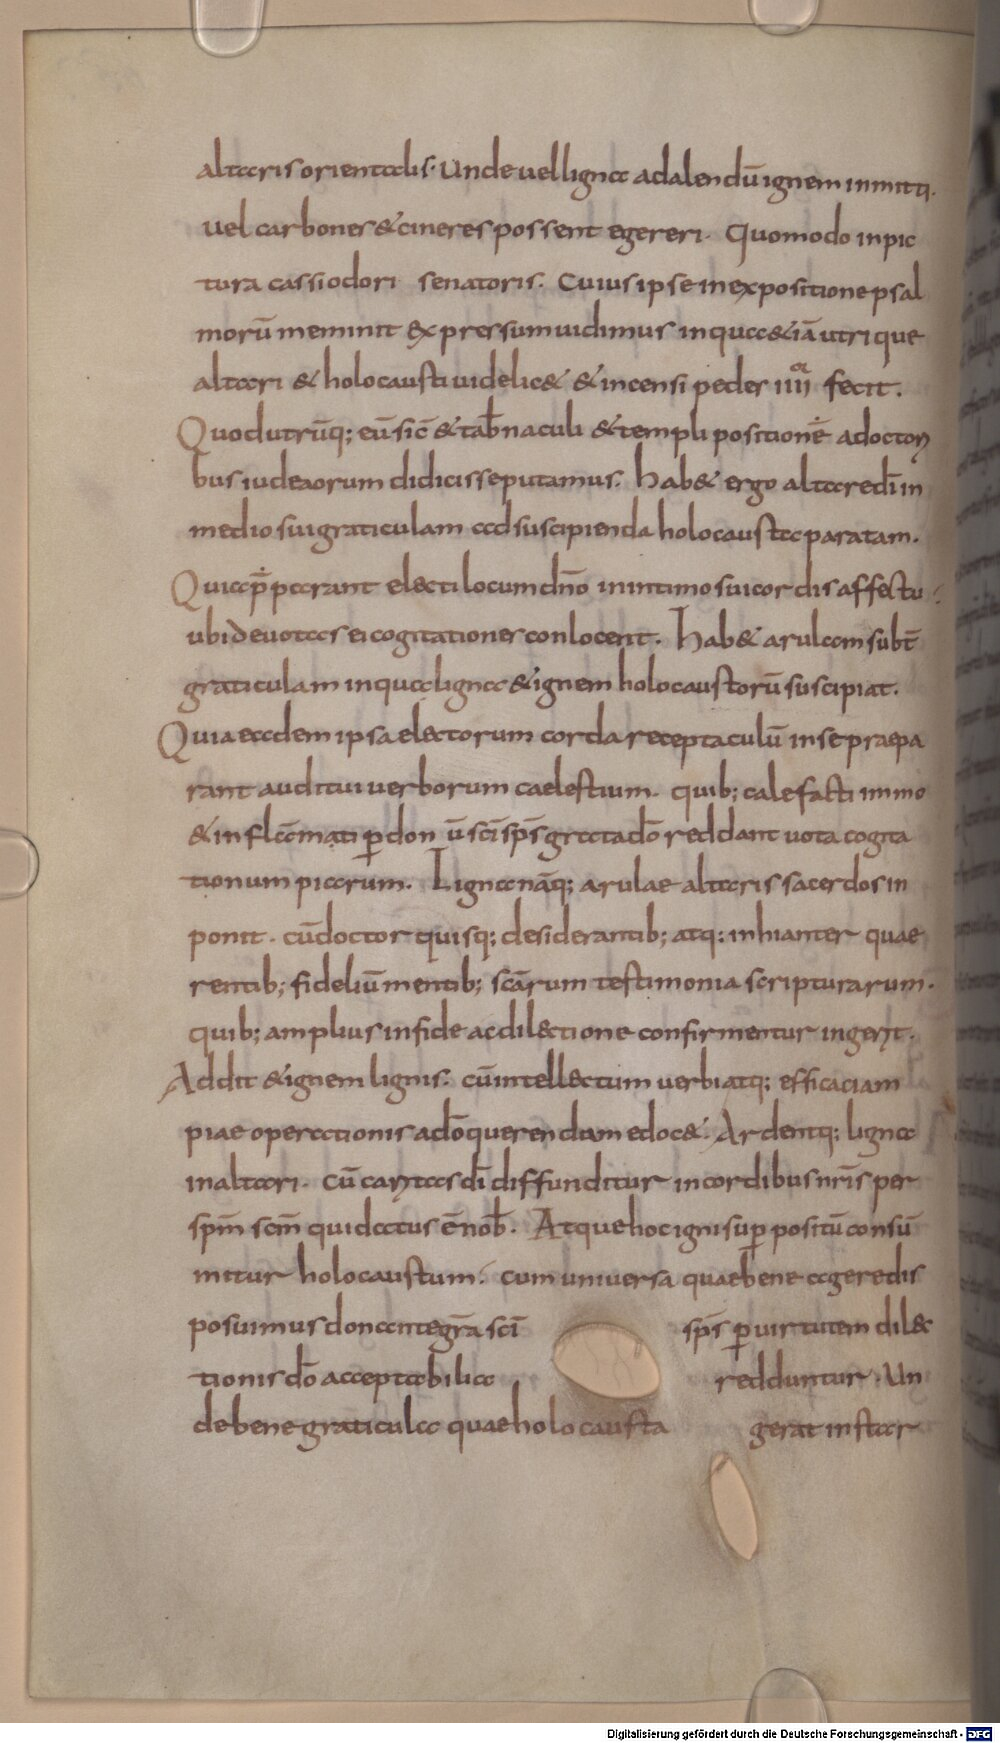 altaris orientalis. Unde vel ligna ad alendū ignem inmitti.
vel carbones & cineres possent egereri. Quomodo in pic
tura cassiodori senatoris. Cuius ipse in expositione psal
morū meminit expressum vidimus in qua & iā utrique
altari & holocausti videlic& & incensi pedes iiiior fecit.
Quod utrūq; eū sic̄ & tab̄naculi & templi positionē a doctori
bus iudeaorum didicisse putamus. hab& ergo altare dī in
medio sui graticulam ad suscipienda holocausta paratam.
Quia p̄parant electi locum dn̄o in intimo sui cordis affectu
ubi devotas ei cogitationes conlocent. Hab& arulam subt̄
graticulam in qua ligna & ignem holocaustorū suscipiat.
Quia eadem ipsa electorum corda receptaculū in se praepa
rant auditui verborum caelestium. quib; calefacti immo
& inflāmati p don ū scī sp̄s grata dō reddant vota cogita
tionum piarum. Ligna nāq; arulae altaris sacerdos in
ponit. cū doctor quisq; desiderantib; atq; inhianter quae
rentib; fideliū mentib; scārum testimonia scripturarum.
quib; amplius in fide ac dilectione confirmentur ingerit.
Addit & ignem lignis. cū intellectum verbi atq; efficaciam
piae operationis a dō querendam edoc&. Ardentq; ligna
in altari. cū caritas dī diffunditur in cordibus nr̄is per
spm̄ scm̄ qui datus ē nob̄. Atque hoc igni sup positū consū
mitur holocaustum. cum universa quae bene agere dis
posuimus donante gr̄a scī sp̄s p virtutem dil&
tionis dō acceptabilia redduntur. Un
de bene graticula quae holocausta gerat instar
Digitalisierung gefördert durch die Deutsche Forschungsgemeinschaft - DFG